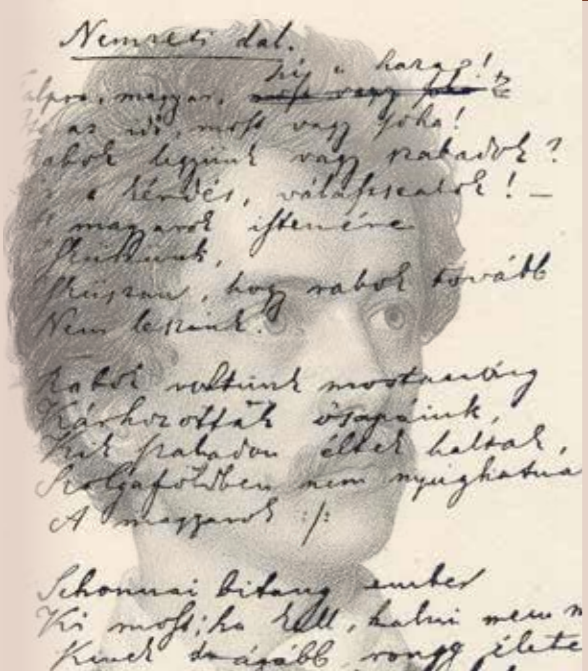 Nemzeti dal.
hí a haza!
magyar, most vagy soha
az idő, most vagy soha!
Rabok legyünk vagy szabadok?
a kérdés, válasszatok! –
A magyarok istenére
Esküszünk,
Esküszünk, hogy rabok tovább
Nem leszünk!
Rabok voltunk mostanáig
Kárhozottak ősapáink,
Kik szabadon éltek haltak,
Szolgaföldben nem nyughatna
A magyarok :/:
Sehonnai bitang ember
Ki most, ha kell, halni nem m
Kinek drágább rongy élete